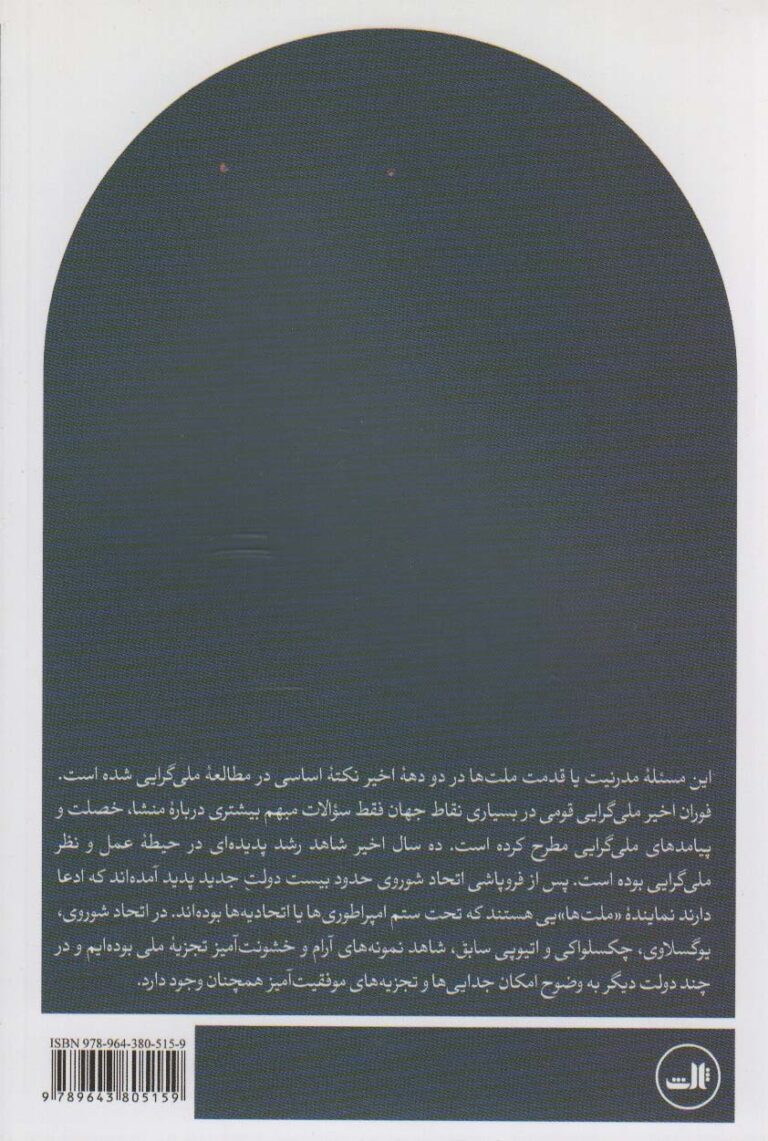 این مسئلهٔ مدرنیت یا قدمت ملت‌ها در دو دههٔ اخیر نکتهٔ اساسی در مطالعهٔ ملی‌گرایی شده است.
فوران اخیر ملی‌گرایی قومی در بسیاری نقاط جهان فقط سؤالات مبهم بیشتری دربارهٔ منشا، خصلت و
پیامدهای ملی‌گرایی مطرح کرده است. ده سال اخیر شاهد رشد پدیده‌ای در حیطهٔ عمل و نظر
ملی‌گرایی بوده است. پس از فروپاشی اتحاد شوروی حدود بیست دولتِ جدید پدید آمده‌اند که ادعا
دارند نمایندهٔ «ملت‌ها»یی هستند که تحت ستم امپراطوری‌ها یا اتحادیه‌ها بوده‌اند. در اتحاد شوروی،
یوگسلاوی، چکسلواکی و اتیوپی سابق، شاهد نمونه‌های آرام و خشونت‌آمیز تجزیهٔ ملی بوده‌ایم و در
چند دولت دیگر به وضوح امکان جدایی‌ها و تجزیه‌های موفقیت‌آمیز همچنان وجود دارد.
ISBN 978-964-380-515-9
9 789643 805159
ثالث